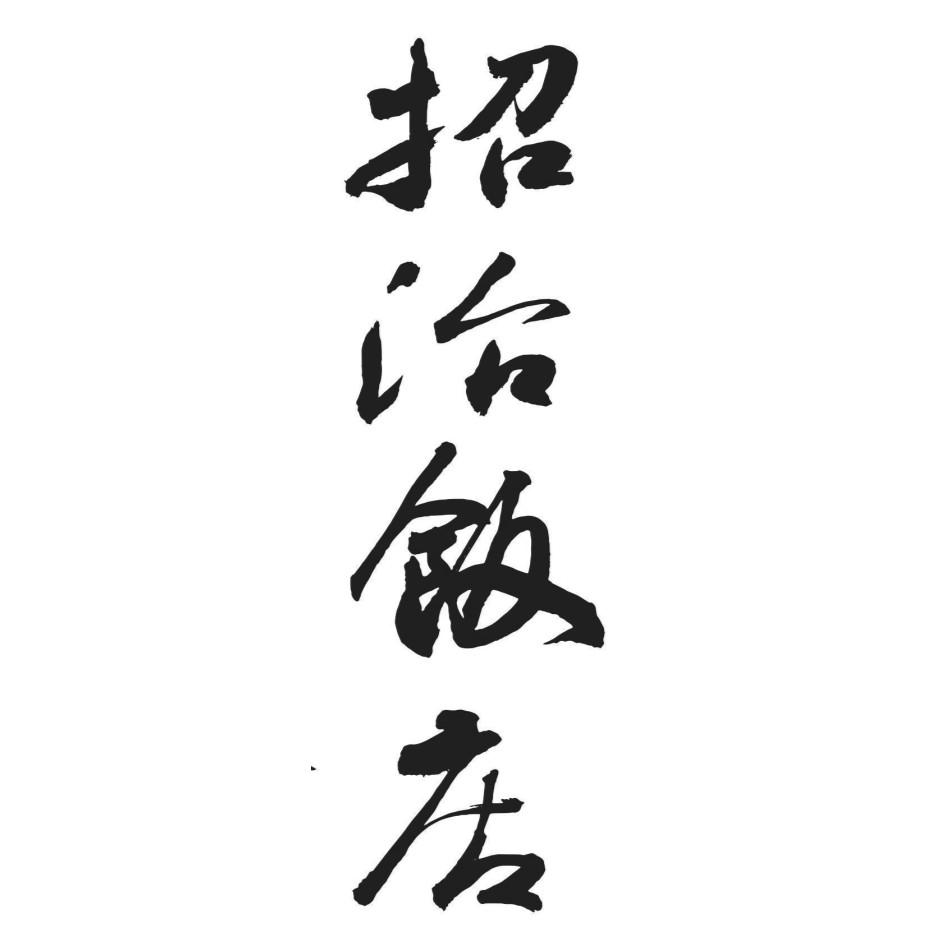 招治飯店